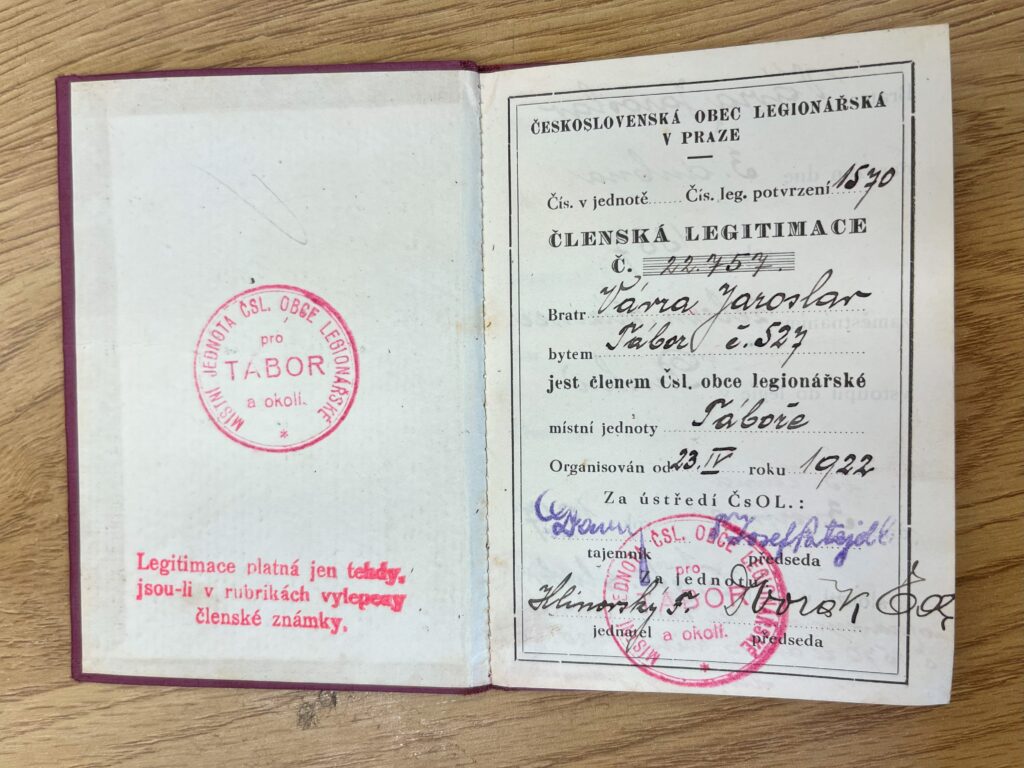 MÍSTNÍ JEDNOTA ČSL. OBCE LEGIONÁŘSKÉ
pro
TÁBOR
a okolí.
*
Legitimace platná jen tehdy,
jsou-li v rubrikách vylepeny
členské známky.
ČESKOSLOVENSKÁ OBEC LEGIONÁŘSKÁ
V PRAZE
Čís. v jednotě Čís. leg. potvrzení 1570
ČLENSKÁ LEGITIMACE
Č. 22.757.
Bratr Vávra Jaroslav
bytem Tábor č. 527
jest členem Čsl. obce legionářské
místní jednoty Táboře
Organisován od 23. IV roku 1922
Za ústředí ČsOL.:
Josef Patejdl
tajemník předseda
Za jednotu
Hlinovský F. Dvořák
jednatel předseda
MÍSTNÍ JEDNOTA ČSL. OBCE LEGIONÁŘSKÉ
pro
TÁBOR
a okolí.
*